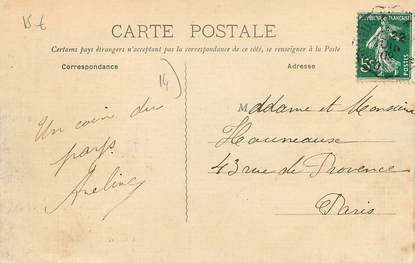 15 €
CARTE POSTALE
Certains pays étrangers n'acceptant pas la correspondance de ce côté, se renseigner à la Poste
Correspondance
Adresse
14
Un coin du
pays
Madame et Monsieur
43 rue de Provence
Paris